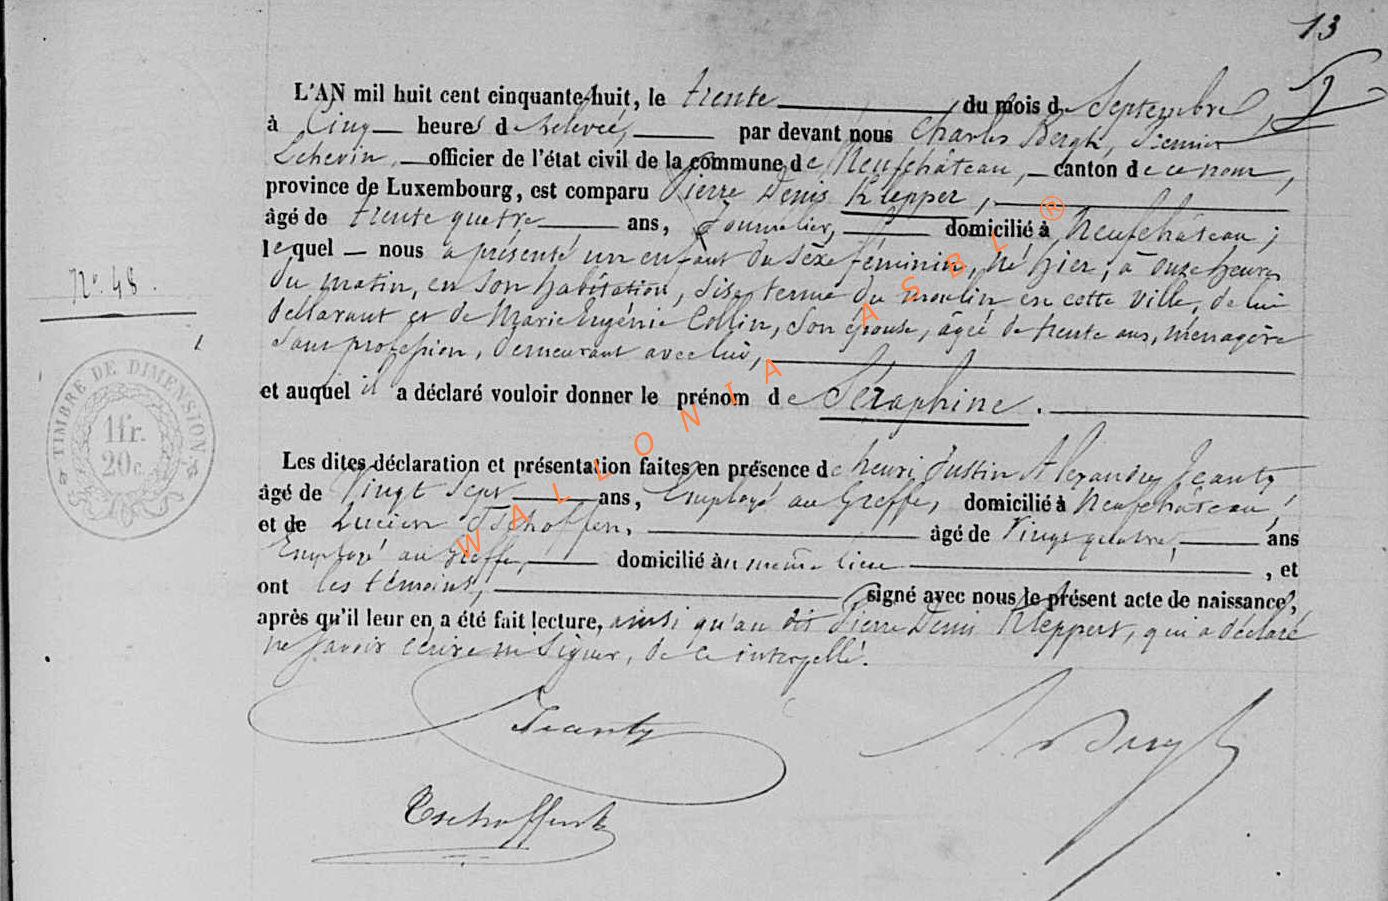 13
L'AN mil huit cent cinquante-huit, le trente du mois de Septembre,
à Cinq heures de relevée, par devant nous Charles Bergh, Premier
Echevin, officier de l'état civil de la commune de Neufchâteau, canton de ce nom,
province de Luxembourg, est comparu Pierre Denis Klepper,
âgé de trente quatre ans, Journalier, domicilié à Neufchâteau;
lequel nous a présenté un enfant du sexe féminin, né hier, à onze heures
du matin, en son habitation, dise ferme du moulin en cette ville, de lui
déclarant et de Marie Eugénie Collin, son épouse, âgée de trente ans, ménagère
N° 48.
sans profession, demeurant avec lui,
et auquel il a déclaré vouloir donner le prénom de Séraphine.
TIMBRE DE DIMENSION
1fr.
20c.
Les dites déclaration et présentation faites en présence de henri Justin Alexandre Jeanty,
âgé de Vingt Sept ans, Employé au Greffe, domicilié à Neufchâteau,
et de Lucien Tschoffen, âgé de Vingt quatre, ans
Employé au greffe, domicilié au même lieu, et
ont les témoins, signé avec nous le présent acte de naissance,
après qu'il leur en a été fait lecture, ainsi qu'au dit Pierre Denis Kleppert, qui a déclaré
ne savoir écrire ni signer, de ce interpellé.
Jeanty
Bergh
Tschoffen
WALLONIA ASBL ®